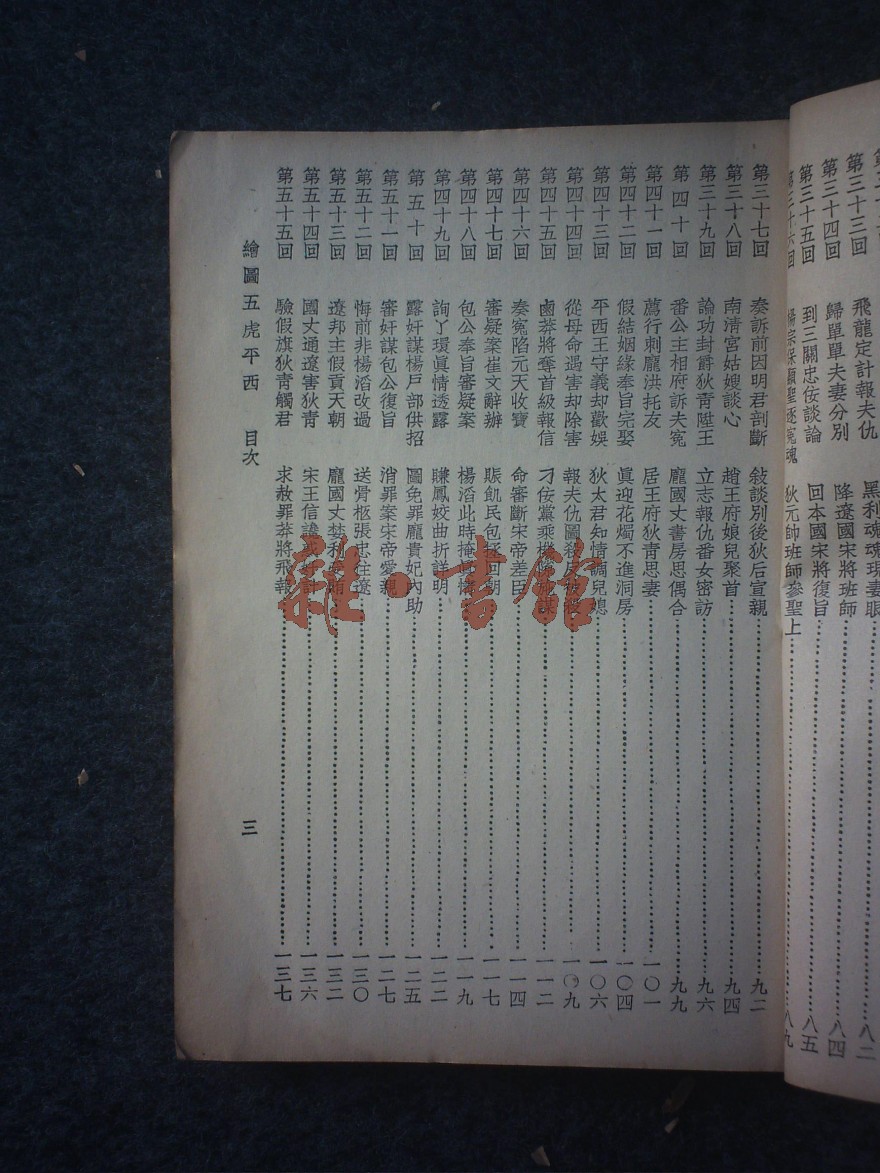 飛龍定計報夫仇 黑利魂魂現妻眼 八二
第三十三回
第三十四回 歸單單夫妻分別 降遼國宋將班師 八四
第三十五回 到三關忠佞談論 回本國宋將復旨 八五
第三十六回 楊宗保顯聖逐冤魂 狄元帥班師參聖上 八九
第三十七回 奏訴前因明君剖斷 敍談別後狄后宣親 九二
第三十八回 南清宮姑嫂談心 趙王府娘兒聚首 九四
第三十九回 論功封爵狄青陞王 立志報仇番女密訪 九六
第四十回 番公主相府訴夫冤 龐國丈書房思偶合 九九
第四十一回 薦行刺龐洪托友 居王府狄青思妻 一〇一
第四十二回 假結姻緣奉旨完娶 眞迎花燭不進洞房 一〇四
第四十三回 平西王守義却歡娛 狄太君知情調兒媳 一〇六
第四十四回 從母命遇害却除害 報夫仇圖 一〇九
第四十五回 鹵莽將奪首級報信 刁佞黨乘機 謀 一一二
第四十六回 奏冤陷元天收寶 命審斷宋帝差臣 一一四
第四十七回 審疑案崔文辭辦 賑飢民包拯回朝 一一七
第四十八回 包公奉旨審疑案 楊滔此時掩 情 一一九
第四十九回 詢丫環眞情透露 賺鳳姣曲折詳明 一二二
第五十回 露奸謀楊戶部供招 圖免罪龐貴妃內助 一二五
第五十一回 審奸謀包公復旨 消罪案宋帝愛親 一二七
第五十二回 悔前非楊滔改過 送骨柩張忠往遼 一三〇
第五十三回 遼邦主假貢天朝 龐國丈婪利 一三二
第五十四回 國丈通遼害狄青 宋王信讒 一三六
第五十五回 驗假旗狄青觸君 求赦罪莽將飛報 一三七
繪圖五虎平西 目次 三
雜·書館